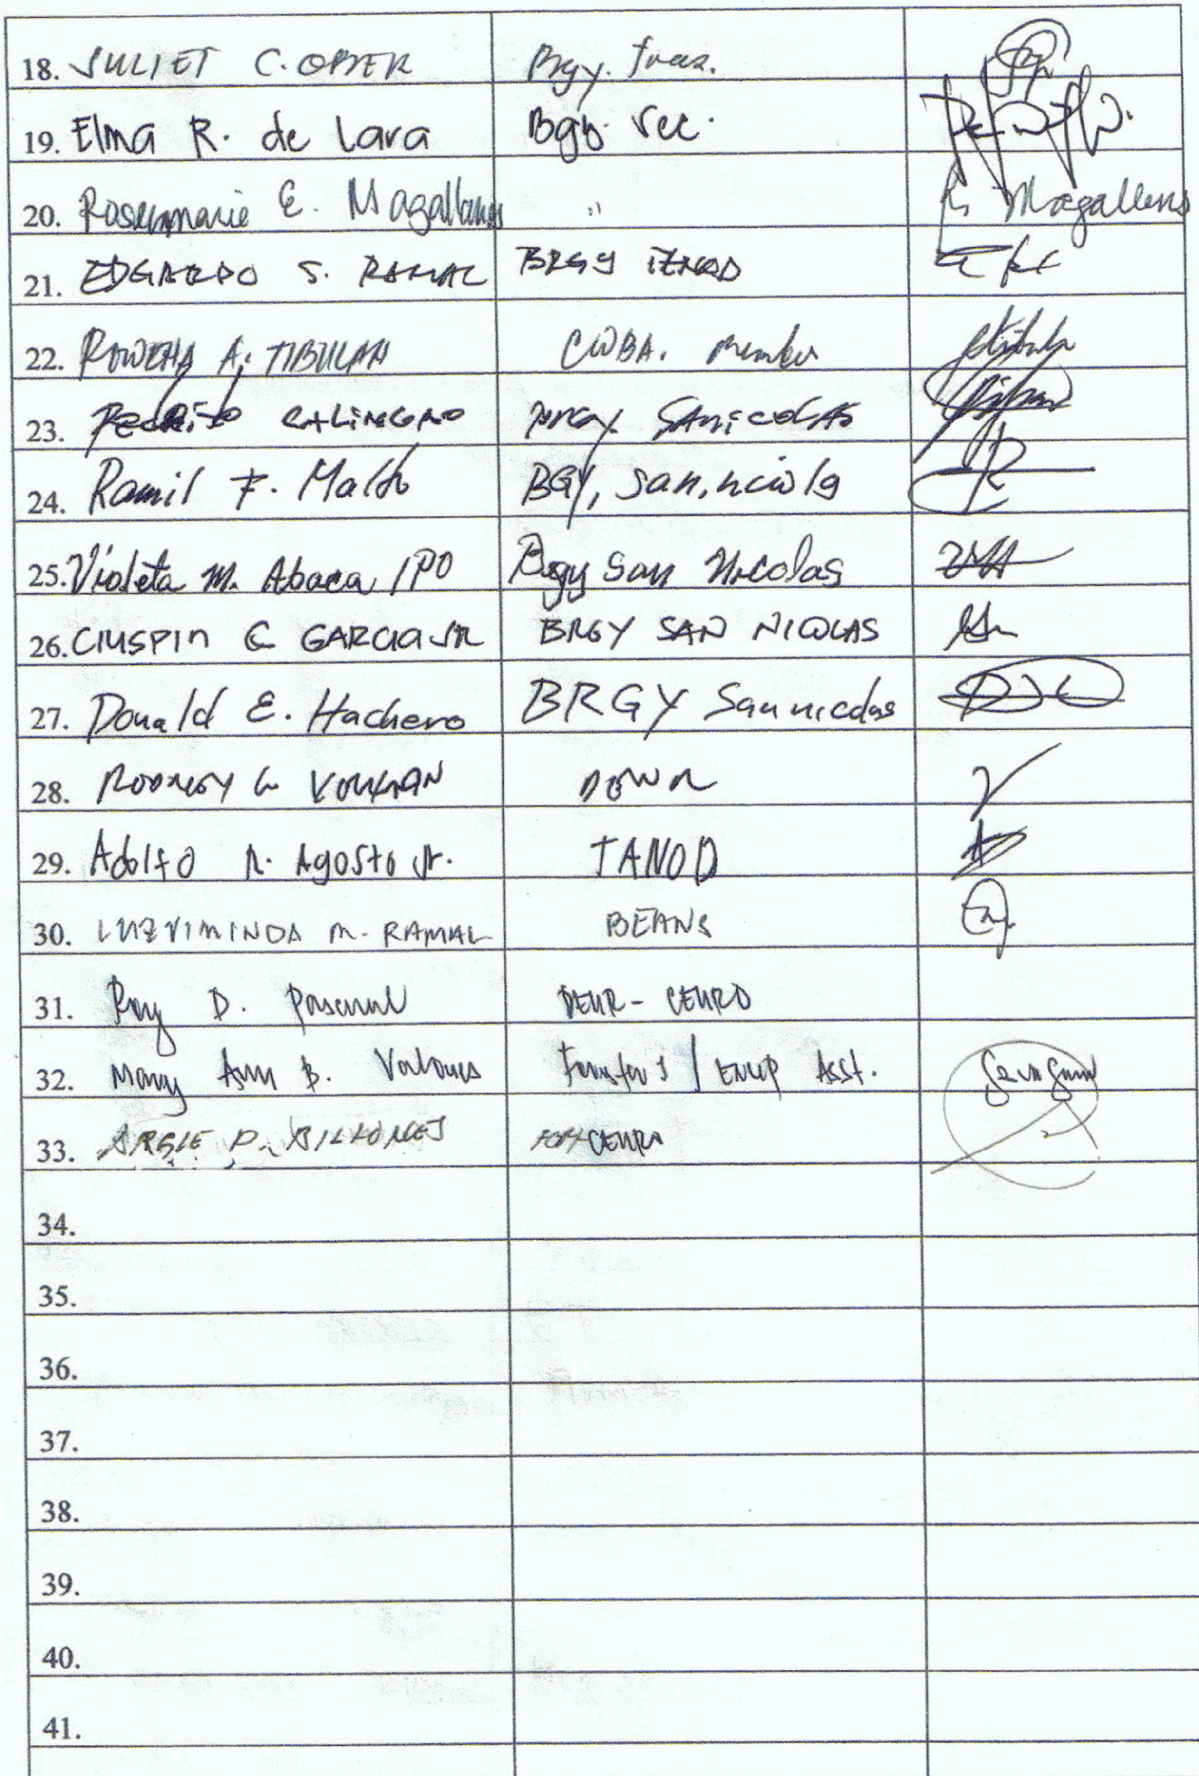 18. JULIET C. OBER Brgy. Treas.
19. Elma R. de Lara Bgy. Sec.
20. Rosemmarie E. Magallanes " R. Magallens
21. EDGARDO S. RAMAL BRGY
22. ROWENA A. TIBULAN member
23. Pedrito Brgy. SANICOLAS
24. Ramil F. BGY, San.
25. Violeta M. Abaca IPO Brgy San Nicolas
26. CRISPIN C GARCIA JR BRGY SAN NICOLAS
27. Donald E. Hachero BRGY San nicolas
28. RODNEY G.
29. Adolfo R. Agosto Jr. TANOD
30. LUZVIMINDA M. RAMAL BEANS
31. Roy D. Pascual DENR - CENRO
32. Mary Ann B. Asst.
33. ARGIE D. CENRO
34.
35.
36.
37.
38.
39.
40.
41.